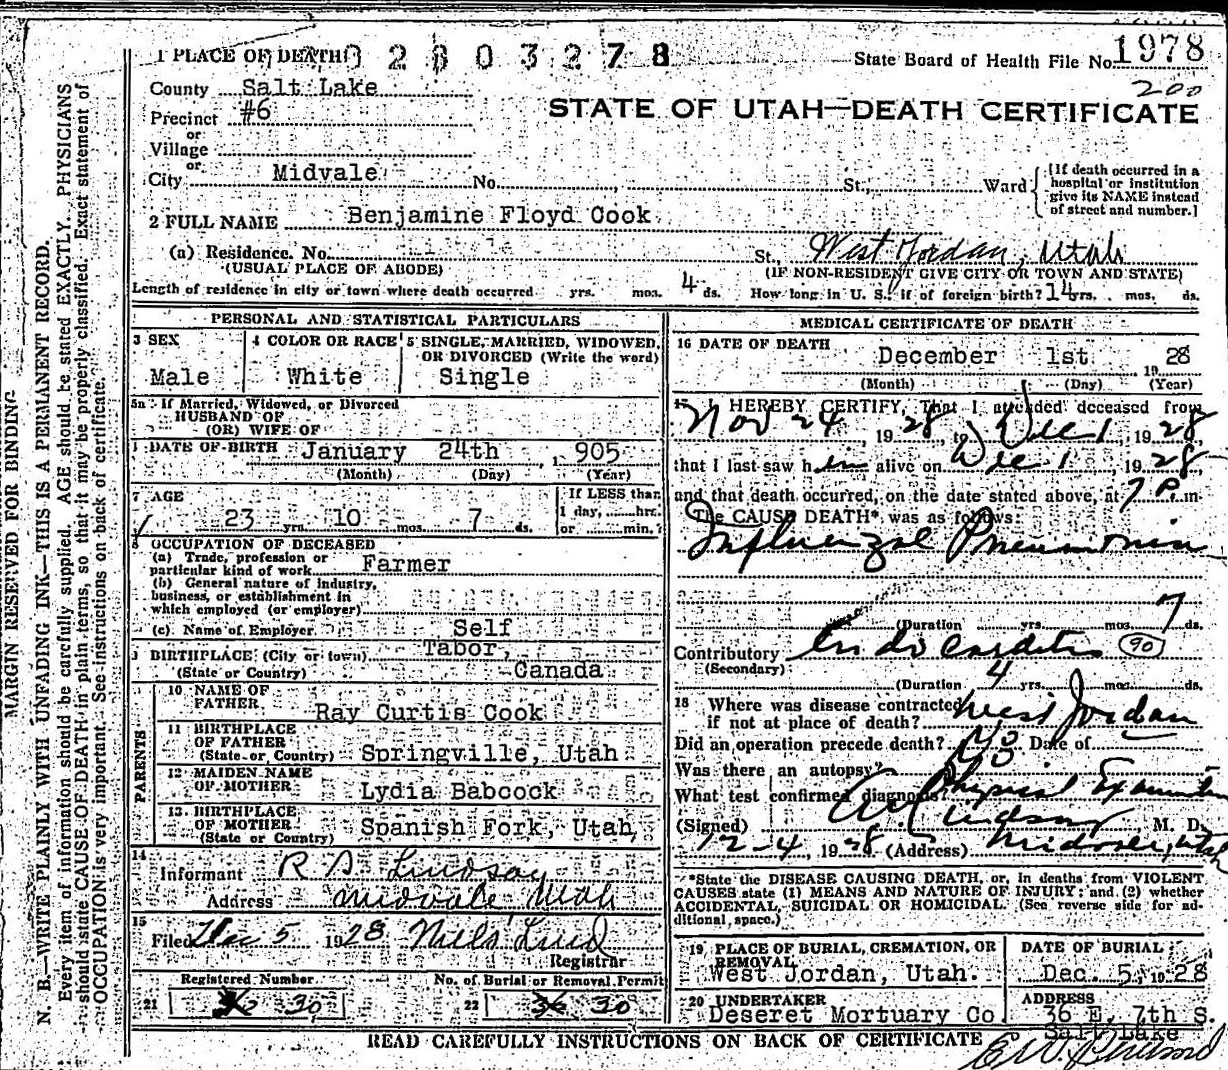 1 PLACE OF DEATH
0 2 8 0 3 2 7 8
State Board of Health File No. 1978
200
County Salt Lake
STATE OF UTAH—DEATH CERTIFICATE
Precinct #6
or
Village
or
City Midvale No. St., Ward
[If death occurred in a
hospital or institution
give its NAME instead
of street and number.]
2 FULL NAME Benjamine Floyd Cook
(a) Residence. No. St., West Jordan, Utah
(USUAL PLACE OF ABODE) (IF NON-RESIDENT GIVE CITY OR TOWN AND STATE)
Length of residence in city or town where death occurred yrs. mos. 4 ds. How long in U. S. if of foreign birth? 14 yrs. mos. ds.
PERSONAL AND STATISTICAL PARTICULARS
3 SEX
Male
4 COLOR OR RACE
White
5 SINGLE, MARRIED, WIDOWED,
OR DIVORCED (Write the word)
Single
5a If Married, Widowed, or Divorced
HUSBAND OF
(OR) WIFE OF
DATE OF BIRTH January 24th 1905
(Month) (Day) (Year)
7 AGE
23 yrs. 10 mos. 7 ds.
If LESS than
1 day, hrs.
or min.?
8 OCCUPATION OF DECEASED
(a) Trade, profession or
particular kind of work Farmer
(b) General nature of industry,
business, or establishment in
which employed (or employer)
(c) Name of Employer Self
BIRTHPLACE (City or town) Tabor,
(State or Country) Canada
PARENTS
10 NAME OF
FATHER Ray Curtis Cook
11 BIRTHPLACE
OF FATHER
(State or Country) Springville, Utah
12 MAIDEN NAME
OF MOTHER Lydia Babcock
13 BIRTHPLACE
OF MOTHER
(State or Country) Spanish Fork, Utah
14
Informant R A Lindsay
Address Midvale Utah
15
Filed Dec 5 1928 Niels Lind
Registrar
Registered Number
21 30
No. of Burial or Removal Permit
22 30
MEDICAL CERTIFICATE OF DEATH
16 DATE OF DEATH
December 1st 1928
(Month) (Day) (Year)
17 I HEREBY CERTIFY, That I attended deceased from
Nov 24, 1928, to Dec 1, 1928,
that I last saw him alive on Dec 1, 1928
and that death occurred, on the date stated above, at 7 P. m
The CAUSE DEATH* was as follows:
Influenzal Pneumonia
(Duration yrs. mos. 7 ds.
Contributory Endocarditis 90
(Secondary)
(Duration 4 yrs. mos. ds.
18 Where was disease contracted
if not at place of death? West Jordan
Did an operation precede death? No Date of
Was there an autopsy? No
What test confirmed diagnosis? Physical Examination
(Signed) Lindsay M. D.
12-4, 1928 (Address) Midvale, Utah
*State the DISEASE CAUSING DEATH, or, in deaths from VIOLENT
CAUSES state (1) MEANS AND NATURE OF INJURY; and (2) whether
ACCIDENTAL, SUICIDAL OR HOMICIDAL. (See reverse side for ad-
ditional space.)
19 PLACE OF BURIAL, CREMATION, OR
REMOVAL
West Jordan, Utah.
DATE OF BURIAL
Dec. 5, 1928
20 UNDERTAKER
Deseret Mortuary Co
ADDRESS
36 E. 7th S.
Salt Lake
READ CAREFULLY INSTRUCTIONS ON BACK OF CERTIFICATE
MARGIN RESERVED FOR BINDING
N. B.—WRITE PLAINLY WITH UNFADING INK—THIS IS A PERMANENT RECORD.
Every item of information should be carefully supplied. AGE should be stated EXACTLY. PHYSICIANS
should state CAUSE OF DEATH in plain terms, so that it may be properly classified. Exact statement of
OCCUPATION is very important. See instructions on back of certificate.